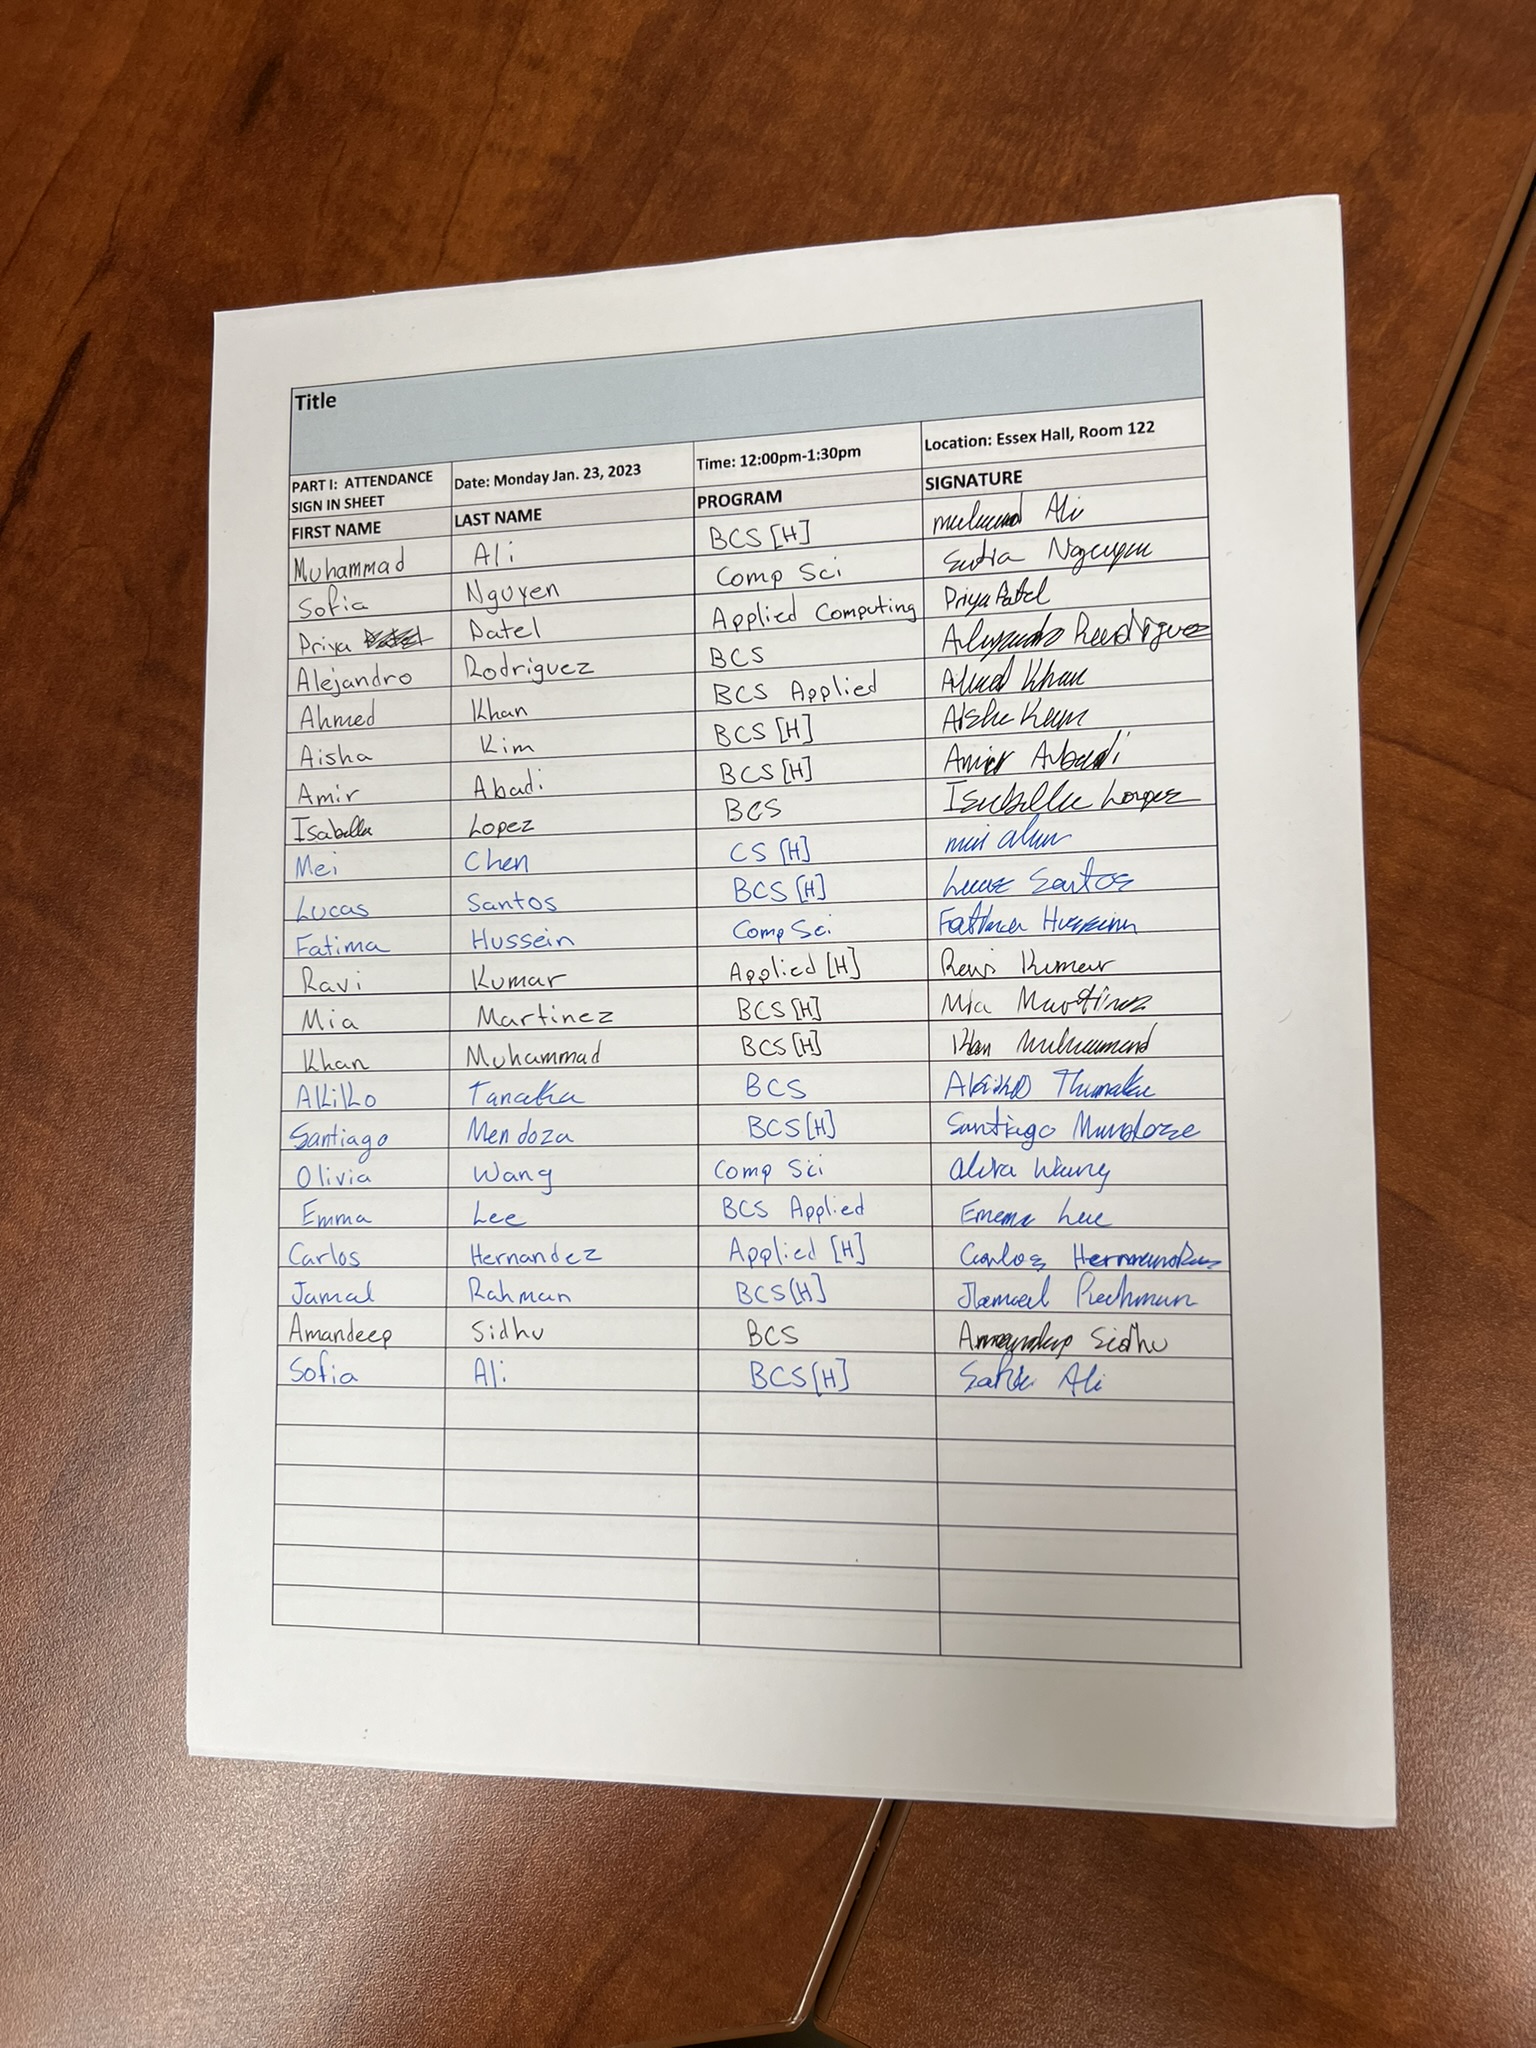 Title
PART I: ATTENDANCE SIGN IN SHEET Date: Monday Jan. 23, 2023 Time: 12:00pm-1:30pm Location: Essex Hall, Room 122
FIRST NAME LAST NAME PROGRAM SIGNATURE
Muhammad Ali BCS [H] Ali
Sofia Nguyen Comp Sci Nguyen
Priya Patel Applied Computing Priya Patel
Alejandro Rodriguez BCS Alejandro Rodriguez
Ahmed Khan BCS Applied Ahmed Khan
Aisha Kim BCS [H] Aisha
Amir Abadi BCS [H] Amir Abadi
Isabella Lopez BCS Isabella Lopez
Mei Chen CS [H]
Lucas Santos BCS [H] Lucas Santos
Fatima Hussein Comp Sci Fatima Hussein
Ravi Kumar Applied [H] Ravi Kumar
Mia Martinez BCS [H] Mia Martinez
Khan Muhammad BCS [H] Khan
Akiko Tanaka BCS Akiko
Santiago Mendoza BCS [H] Santiago
Olivia Wang Comp Sci Wang
Emma Lee BCS Applied Emma Lee
Carlos Hernandez Applied [H] Carlos
Jamal Rahman BCS [H]
Amandeep Sidhu BCS Sidhu
Sofia Ali BCS [H] Ali